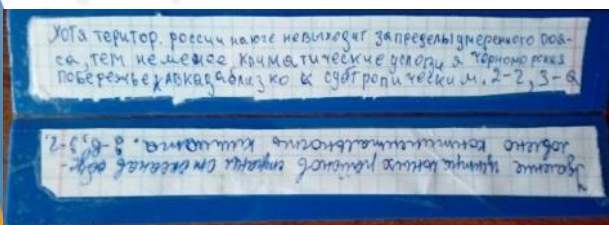 Хотя територ. россии на юге невыходит запределы умеренного поя-
са, тем не менее климатические условия черноморская
побережье кавказа близко к субтропическим. 2-г, 3-а
Удаление центральных районов страны от океанов обус-
ловлено континентальность климата. 3-г.